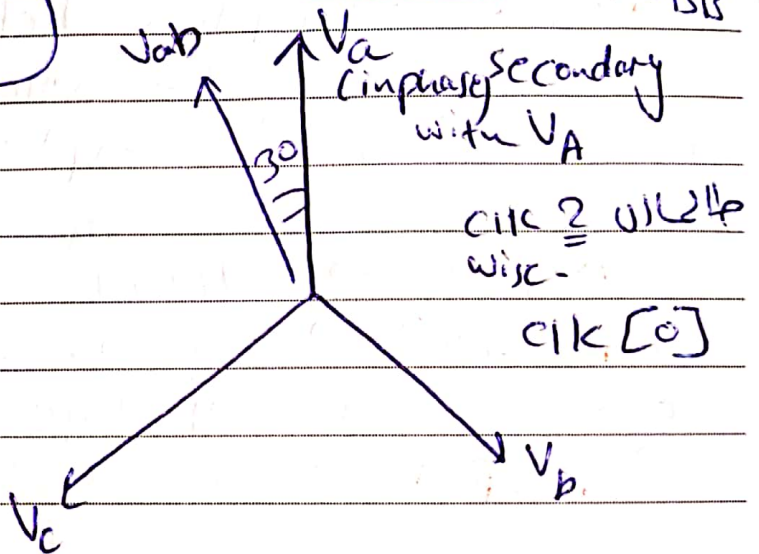 Vab
Va
(inphase) Secondary
with VA
30
clk
wise -
clk [0]
Vc
Vb